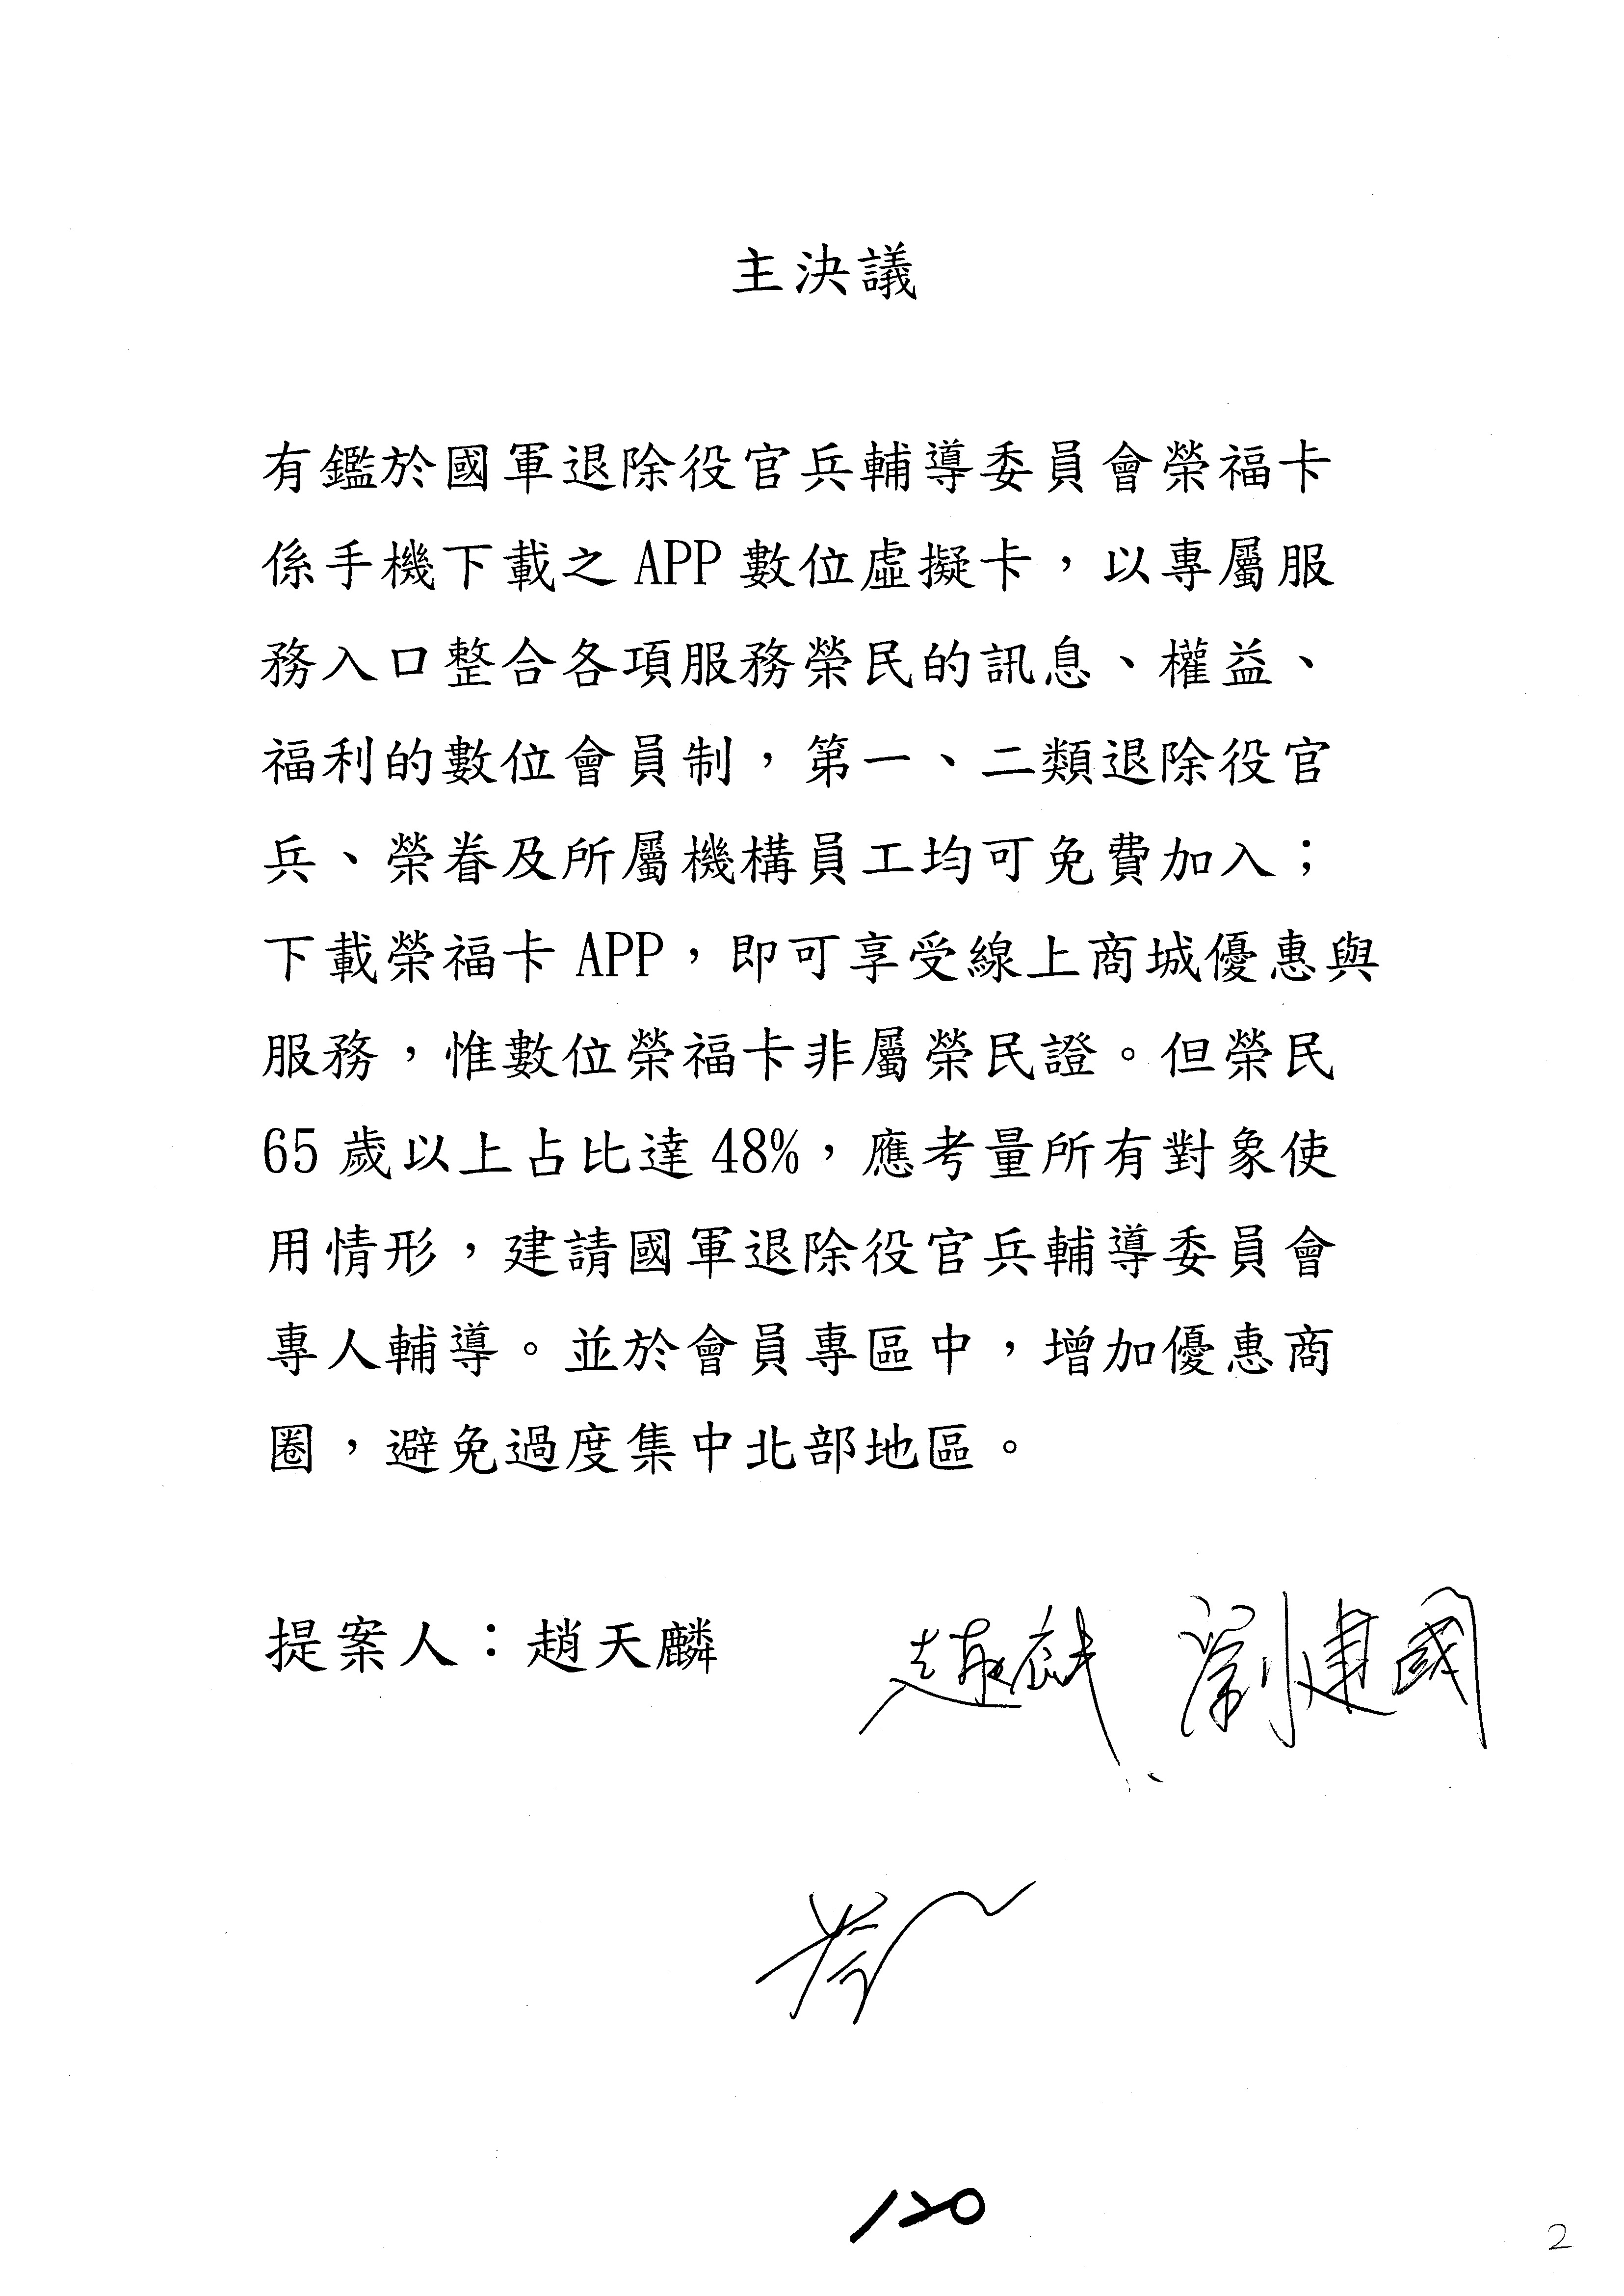 主決議
有鑑於國軍退除役官兵輔導委員會榮福卡
係手機下載之 APP 數位虛擬卡，以專屬服
務入口整合各項服務榮民的訊息、權益、
福利的數位會員制，第一、二類退除役官
兵、榮眷及所屬機構員工均可免費加入；
下載榮福卡 APP，即可享受線上商城優惠與
服務，惟數位榮福卡非屬榮民證。但榮民
65 歲以上占比達 48%，應考量所有對象使
用情形，建請國軍退除役官兵輔導委員會
專人輔導。並於會員專區中，增加優惠商
圈，避免過度集中北部地區。
提案人：趙天麟
劉建國
120
2